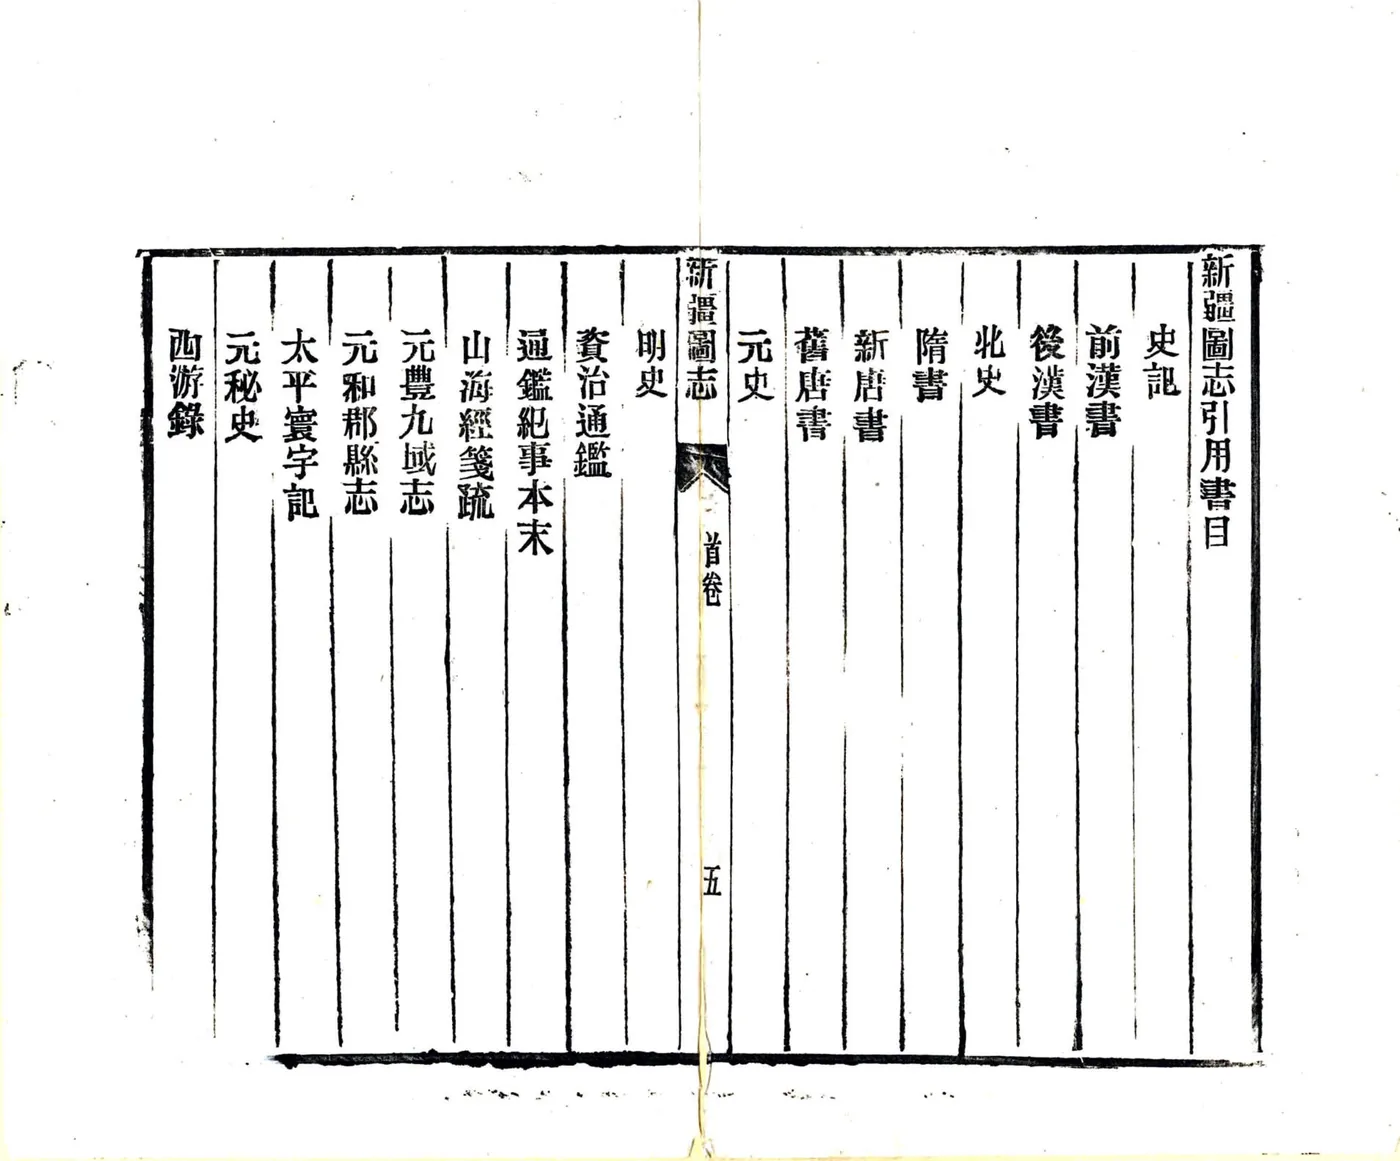 新疆圖志引用書目
史記
前漢書
後漢書
北史
隋書
新唐書
舊唐書
元史
新疆圖志
首卷
五
明史
資治通鑑
通鑑紀事本末
山海經箋疏
元豐九域志
元和郡縣志
太平寰宇記
元秘史
西游錄